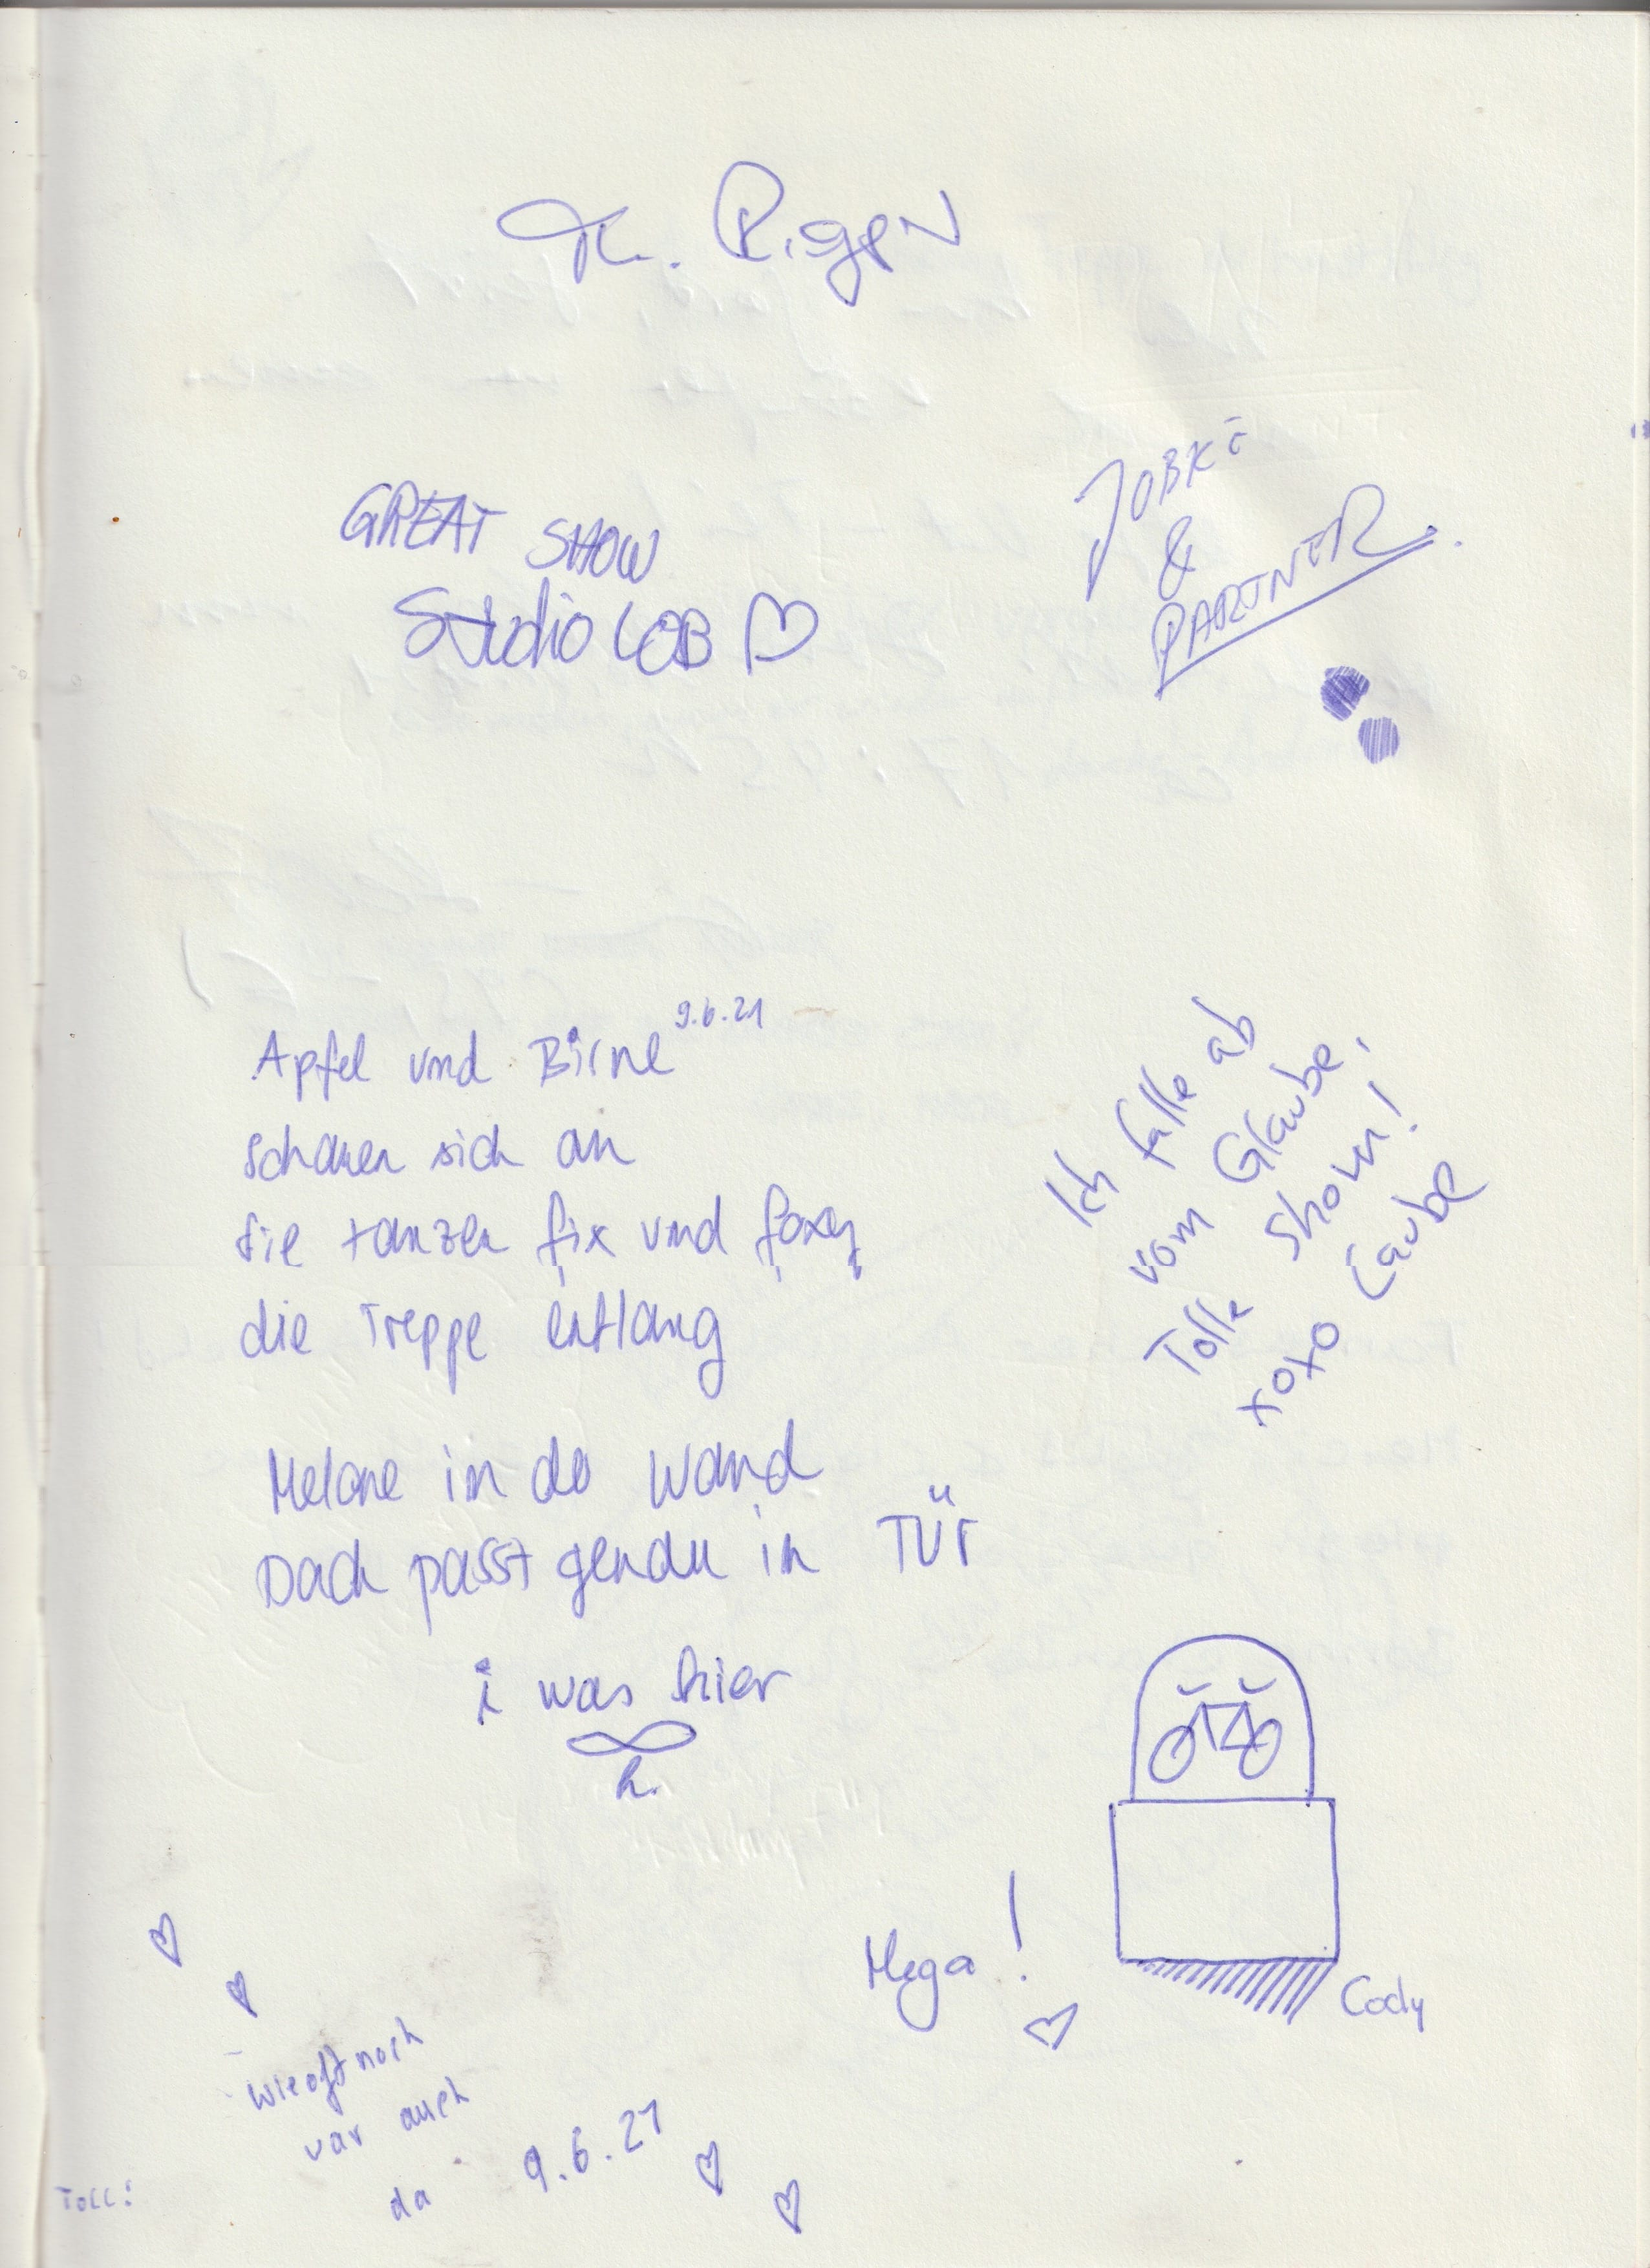 GREAT SHOW
Studio LOB
JOBKE
&
PARTNER.
9.6.21
Apfel und Birne
schauen sich an
sie tanzen fix und foxy
die Treppe entlang
Melone in der Wand
Dach passt genau in TÜr
i was hier
h.
Ich falle ab
vom Glaube,
Tolle Show!
xoxo Laube
Mega!
Cody
wieoftnoch
war auch
da 9.6.21
TOLL!